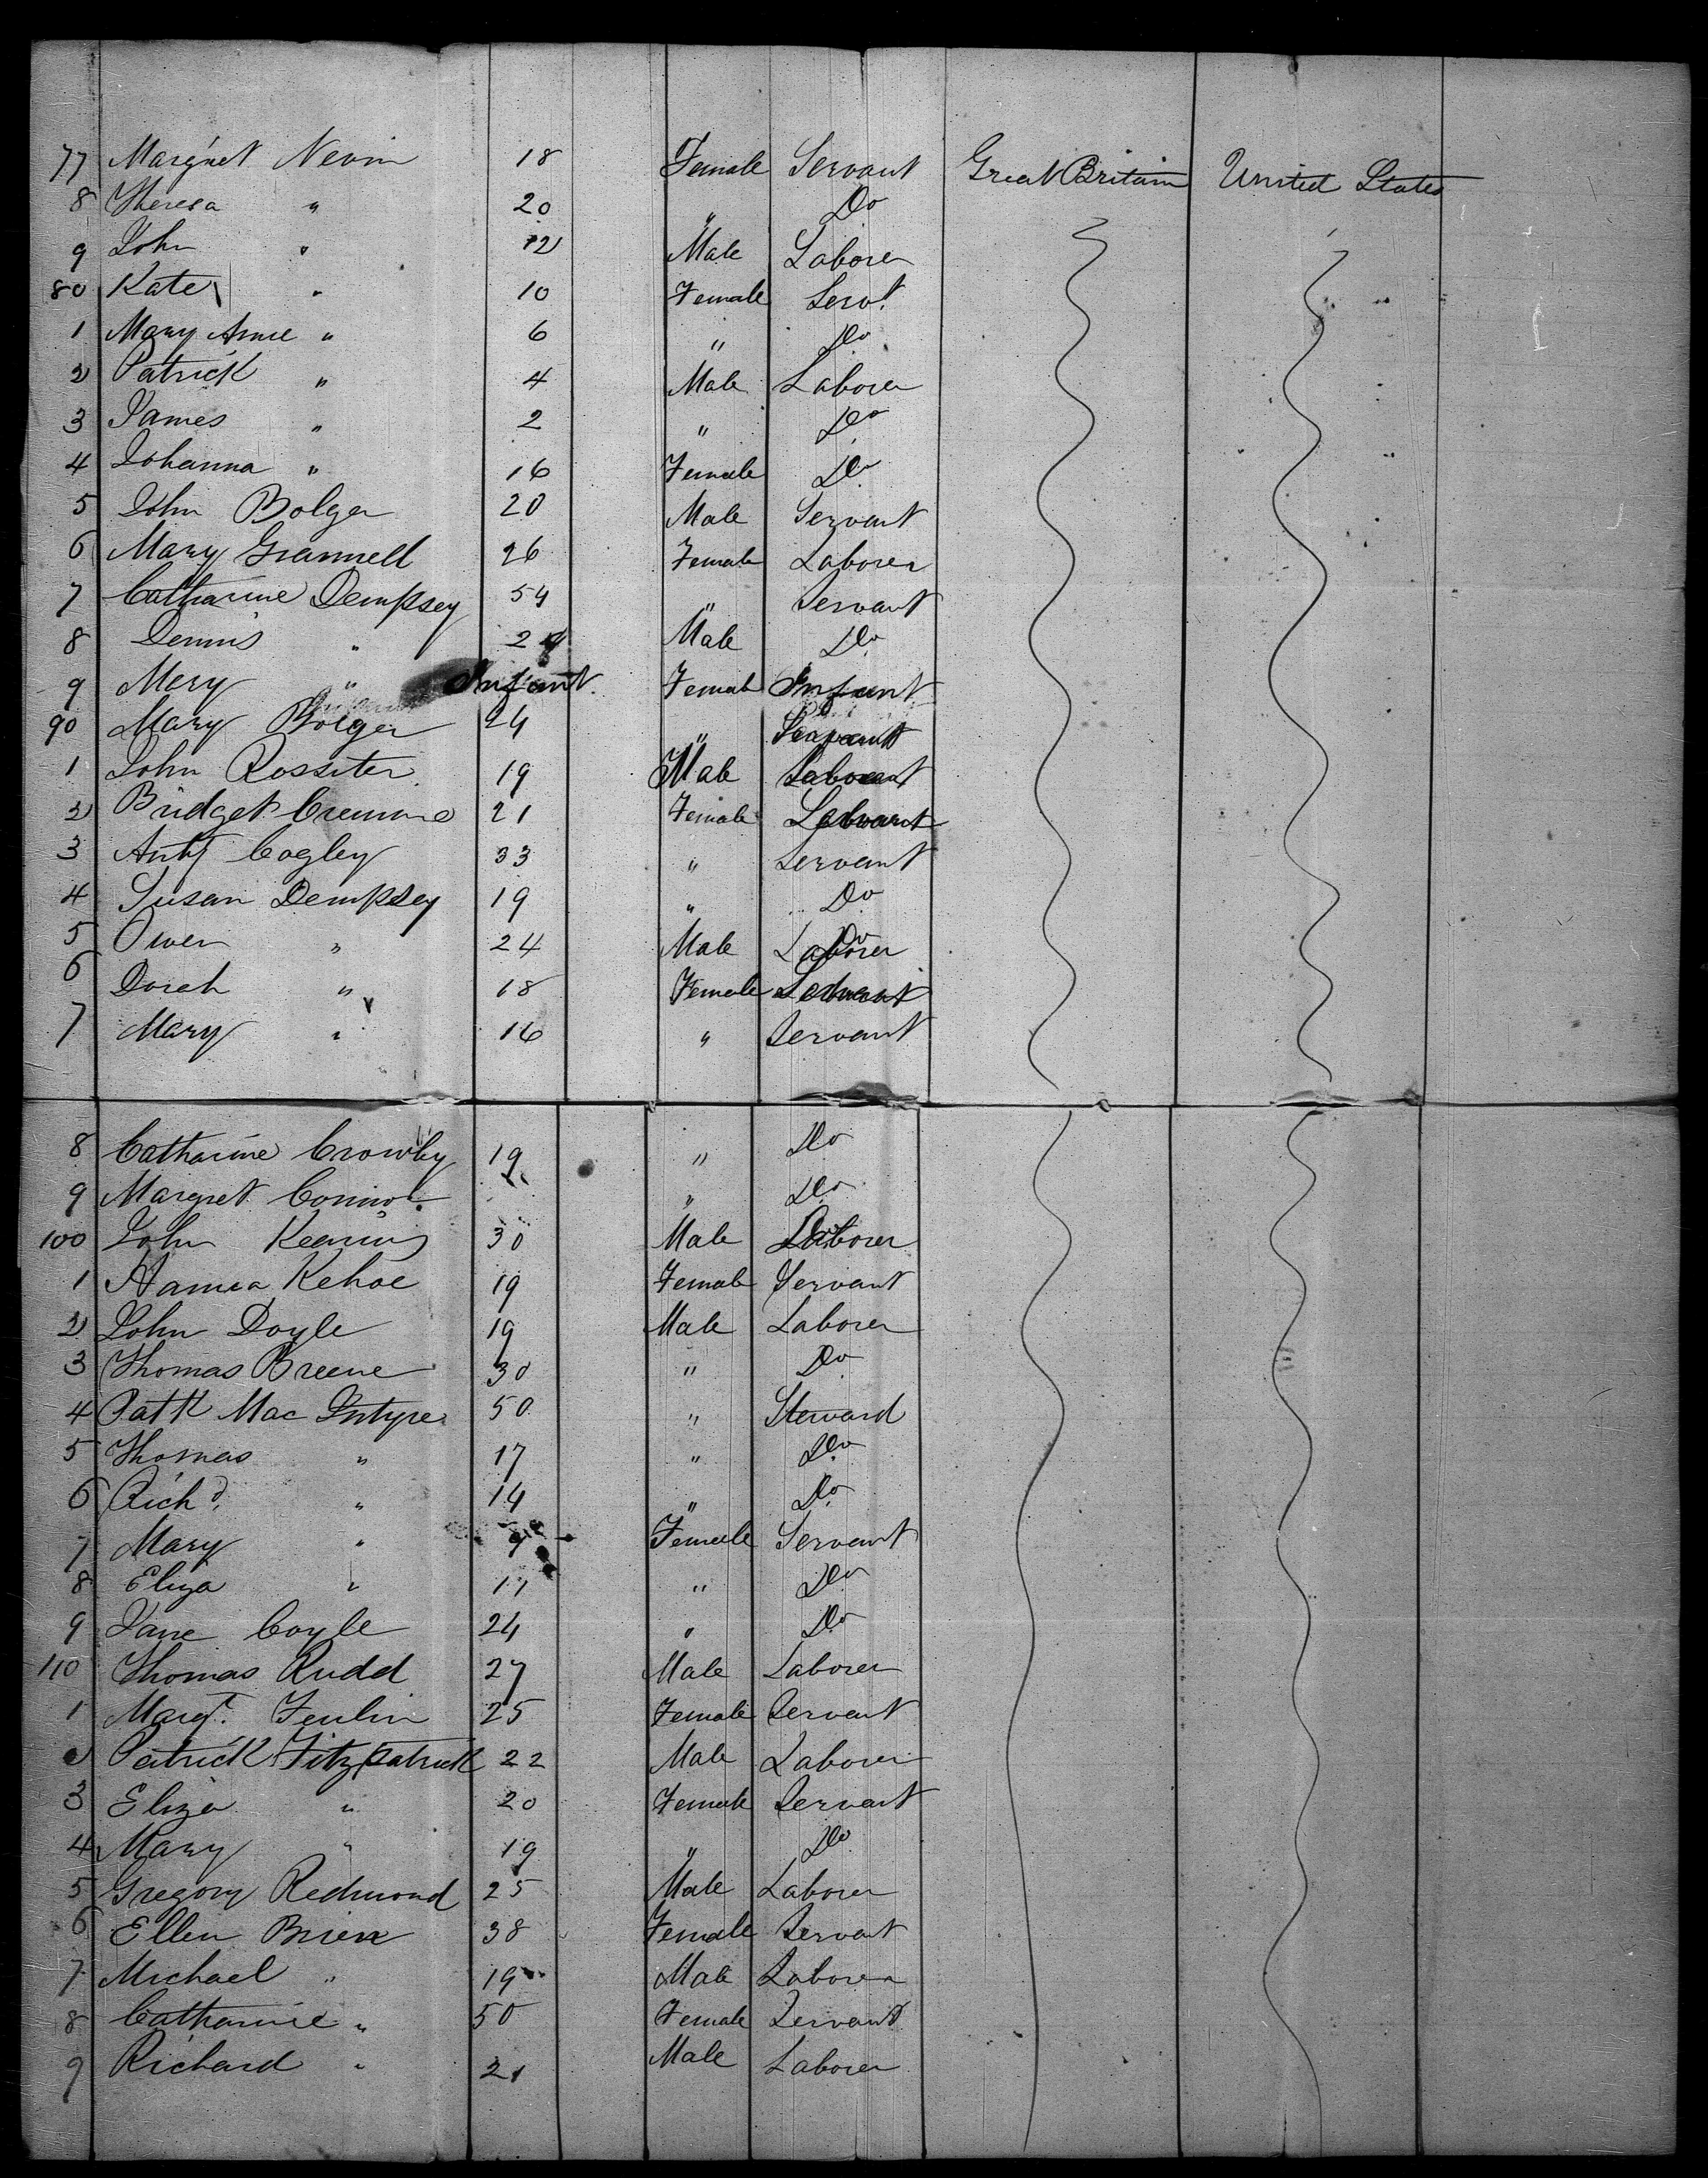 77 Margret Nevin 18 Female Servant Great Britain United States
8 Theresa " 20 " Do
9 John " 12 Male Laborer
80 Kate " 10 Female Servt
1 Mary Anne " 6 " Do
2 Patrick " 4 Male Laborer
3 James " 2 " Do
4 Johanna " 16 Female Do
5 John Bolger 20 Male Servant
6 Mary Grannell 26 Female Laborer
7 Catharine Dempsey 54 " Servant
8 Dennis " 24 Male Do
9 Mery " Infant Female Infant
90 Mary Bolger 24 " Servant
1 John Rossiter 19 Male
2 Bridget 21 Female
3 Cogley 33 " Servant
4 Susan Dempsey 19 " Do
5 Owen " 24 Male Laborer
6 Dorah " 18 Female
7 Mary " 16 " Servant
8 Catharine Crowley 19 " Do
9 Margret " Do
100 John 30 Male Laborer
1 Kehoe 19 Female Servant
2 John Doyle 19 Male Laborer
3 Thomas Breene 30 " Do
4 Patk Mac Intyre 50 " Steward
5 Thomas " 17 " Do
6 Richd " 14 " Do
7 Mary " 9 Female Servant
8 Eliza " 11 " Do
9 Jane Coyle 24 " Do
110 Thomas Rudd 27 Male Laborer
1 Margt. 25 Female Servant
2 Patrick Fitzpatrick 22 Male Laborer
3 Eliza " 20 Female Servant
4 Mary " 19 " Do
5 Gregory Redmond 25 Male Laborer
6 Ellen Brien 38 Female Servant
7 Michael " 19 Male Laborer
8 Catharine " 50 Female Servant
9 Richard " 21 Male Laborer